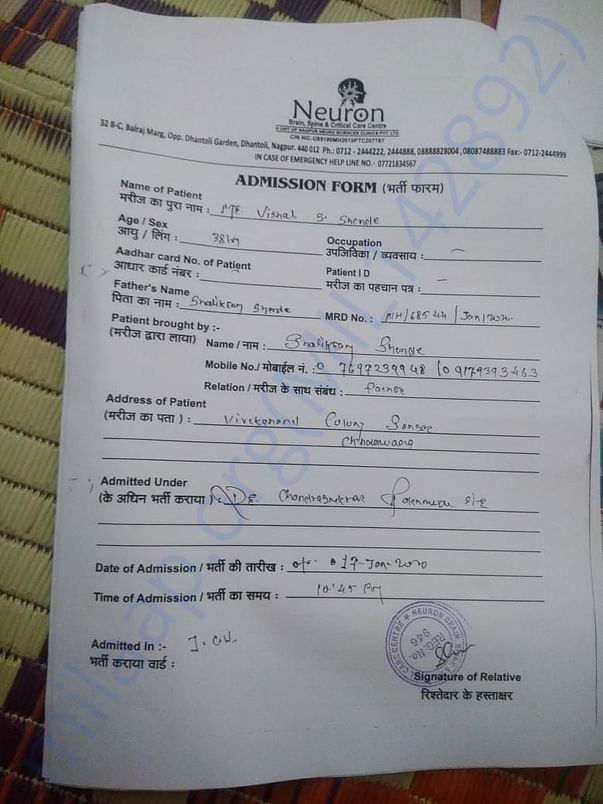 Neuron
Brain, Spine & Critical Care Centre
A UNIT OF NAGPUR NEURO SCIENCES CLINICS PVT. LTD.
32 B-C, Balraj Marg, Opp. Dhantoli Garden, Dhantoli, Nagpur. 440 012 Ph.: 0712 - 2444222, 2444888, 08888828004 ,08087488883 Fax:- 0712-2444999
IN CASE OF EMERGENCY HELP LINE NO.- 07721834567
ADMISSION FORM (भर्ती फारम)
Name of Patient
मरीज का पुरा नाम : Vishal S. Shende
Age / Sex
आयु / लिंग : 38/M
Occupation
उपजिविका / व्यवसाय : -
Aadhar card No. of Patient
आधार कार्ड नंबर :
Patient I D
मरीज का पहचान पत्र : -
Father's Name
पिता का नाम : Shalikram Shende
MRD No. : NH/68544/Jan/2020.
Patient brought by :-
(मरीज द्वारा लाया) Name / नाम : Shalikram Shende
Mobile No./ मोबाईल नं. :
Relation / मरीज के साथ संबंध : Father
Address of Patient
(मरीज का पता ) : Vivekanand Colony
Admitted Under
(के अधिन भर्ती कराया ) : Dr.
Date of Admission / भर्ती की तारीख : 17-Jan-2020
Time of Admission / भर्ती का समय : 10:45 PM
Admitted In :-
भर्ती कराया वार्ड :
NEURON BRAIN
CARE CENTRE
REG. No. 946
Signature of Relative
रिश्तेदार के हस्ताक्षर
milaap.org(MIL142892)